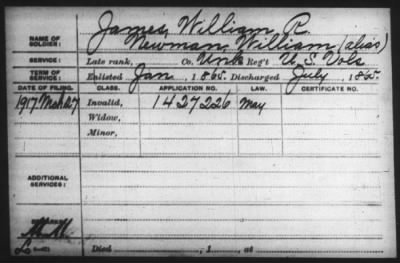 NAME OF SOLDIER: James, William R.
Newman, William (alias)
SERVICE: Late rank, Co. Unk Reg't U.S. Vols
TERM OF SERVICE: Enlisted Jan, 1865 Discharged July, 1865
DATE OF FILING. CLASS. APPLICATION NO. LAW. CERTIFICATE NO.
1917 Mch 27 Invalid, 1427226 May
Widow,
Minor,
ADDITIONAL SERVICES:
M.M.
Died , 1 , at